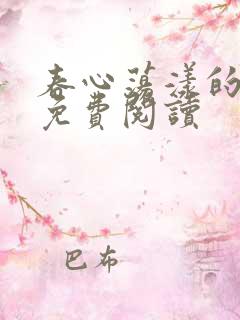 春心荡漾的
免費閱讀
巴布